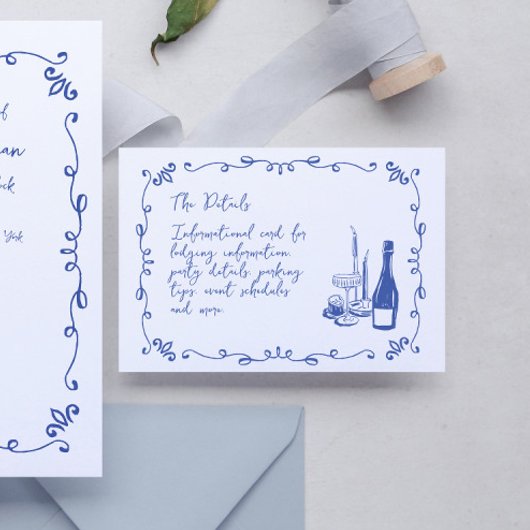 of
an
ock
York
The Details
Informational card for
lodging information,
party details, parking
tips, event schedules
and more.